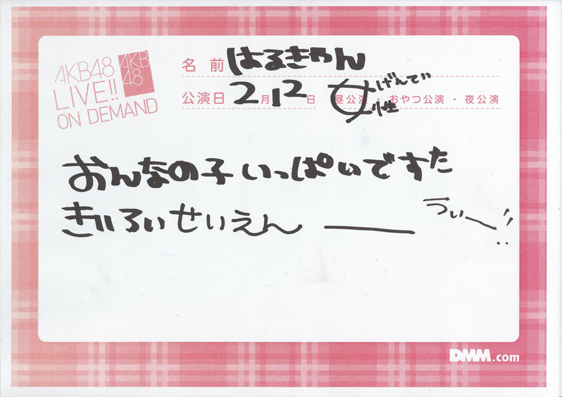 AKB48
LIVE!!
ON DEMAND
AKB
48
名 前 はるきゃん
公演日 2月12日 女性げんてい 昼公演・おやつ公演・夜公演
おんなの子いっぱいですた
きいろいせいえん ―― うぃ〜!!
DMM.com